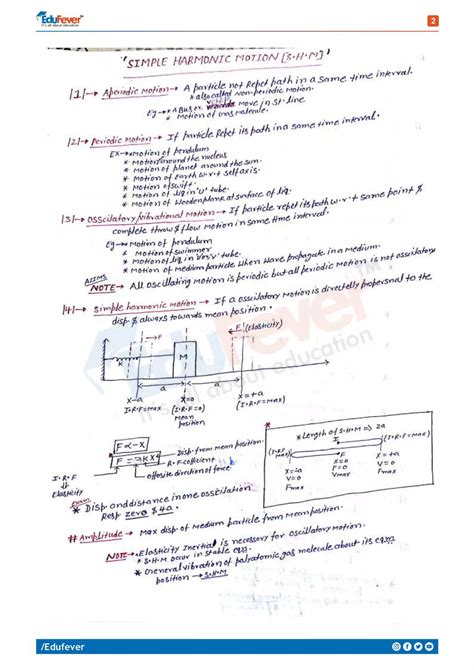 EduFever
It's all about education
2
"SIMPLE HARMONIC MOTION [S.H.M]"
|1|→ Aperiodic Motion → A particle not Repet path in a same time interval.
* also called Non-periodic motion.
Eg → * A Bus or vehicle move in st. line
* Motion of Gas molecule.
|2|→ Periodic Motion → If particle Repet its path in a same time interval.
Ex → * Motion of pendulum
* Motion around the nucleus
* Motion of planet around the sun.
* Motion of Earth w.r.t self axis.
* Motion of swift
* Motion of liq in 'U' tube.
* Motion of Wooden plank at surface of liq.
|3|→ Osscilatory/vibrational Motion → If particle repet its path w.r.t same point &
complete throw & flow Motion in same time interval.
Eg → Motion of pendulum
* Motion of swimmer
* Motion of liq in 'U' tube.
* Motion of Medium particle when Wave propagate in a Medium.
AIIMS
NOTE → All oscillating Motion is periodic but all periodic Motion is not oscillatory
|4|→ Simple harmonic Motion → If a osscilatory Motion is directly propersnal to the
disp & always towards mean position.
F (Elasticity)
F
K
M
a
a
x=-a
x=0
x=+a
I.R.F=max
(I.R.F=0)
(I.R.F=Max)
mean
position
F∝-x
F=-Kx
Disp. from mean position.
R.F coefficient
opposite direction of force
I.R.F
Elasticity
* Length of S.H.M ⇒ 2a
(I.R.F
max)
(I.R.F=max)
F
x=-a
V=0
Fmax
x=0
F=0
x=+a
V=0
Fmax
Exam
* Disp and distance in one osscilation
Resp zero & 4a.
# Amplitude → Max disp of Medium particle from Mean position.
NOTE → * Elasticity Inertial is necessary for Oscillatory Motion.
* S.H.M occur in stable eqm.
* General vibration of polyatomic gas molecule about its eqm
position → S.H.M
EduFever
it's all about education
TM
/Edufever